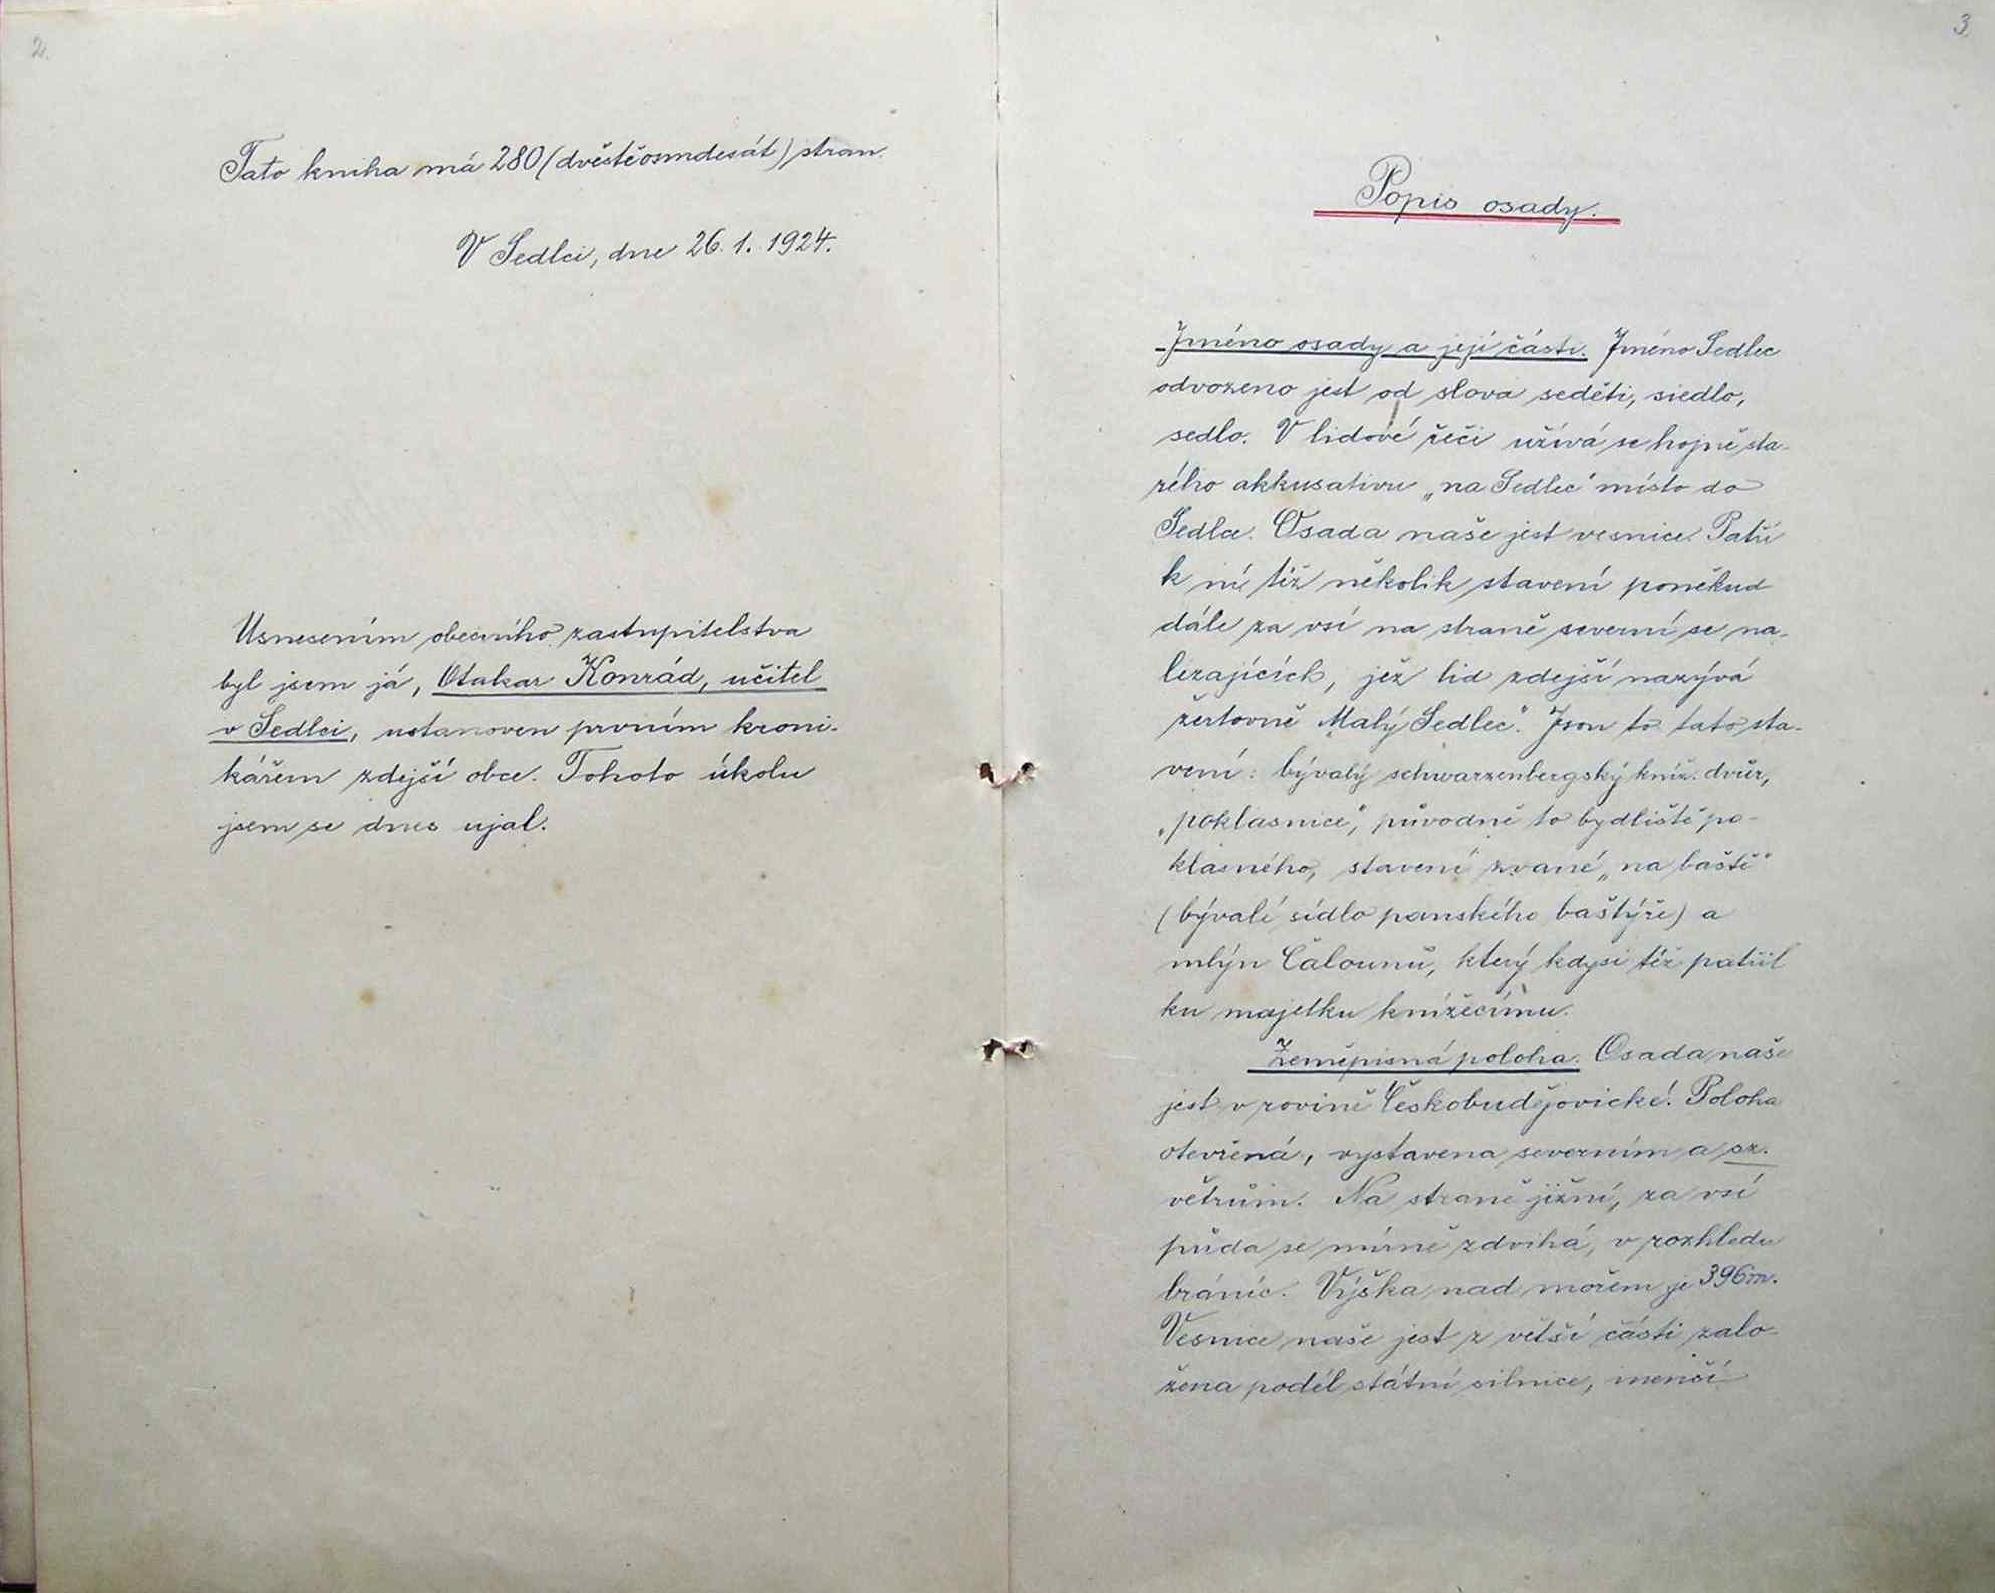 2.
Tato kniha má 280 (dvěstěosmdesát) stran.
V Sedlci, dne 26. 1. 1924.
Usnesením obecního zastupitelstva
byl jsem já, Otakar Konrád, učitel
v Sedlci, ustanoven prvním kroni-
kářem zdejší obce. Tohoto úkolu
jsem se dnes ujal.
3
Popis osady.
Jméno osady a její části. Jméno Sedlec
odvozeno jest od slova seděti, siedlo,
sedlo. V lidové řeči užívá se hojně sta-
rého akkusativu „na Sedlec" místo do
Sedlce. Osada naše jest vesnice. Patří
k ní též několik stavení poněkud
dále za vsí na straně severní se na-
lézajících, jež lid zdejší nazývá
žertovně „Malý Sedlec". Jsou to tato sta-
vení: bývalý schwarzenbergský kníž. dvůr,
„poklasnice", původně to bydliště po-
klasného, stavení zvané „na baště"
(bývalé sídlo panského baštýře) a
mlýn Čalounů, který kdysi též patřil
ku majetku knížecímu.
Zeměpisná poloha. Osada naše
jest v rovině Českobudějovické. Poloha
otevřená, vystavena severním a sz.
větrům. Na straně jižní, za vsí
půda se mírně zdvihá, v rozhledu
bráníc. Výška nad mořem je 396 m.
Vesnice naše jest z větší části zalo-
žena podél státní silnice, menší